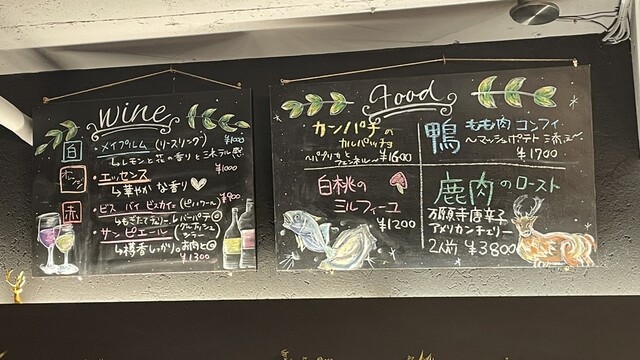 wine
白
・メイプルム (リースリング) ¥1000
↳レモンと花の香りとミネラル感
オレンジ
・エッセンス
↳華やかな香り ¥1000
赤
・ピス バイ ビスカイエ (ピノノワール) ¥900
↳もぎたてチェリー
・サン ピエール
シラー
↳樽香しっかり。お肉と◎
¥1300
food
カンパチの
カルパッチョ
〜パプリカと
フェンネル〜 ¥1600
鴨もも肉コンフィ
〜マッシュポテト添え〜
¥1700
白桃の
ミルフィーユ
¥1200
鹿肉のロースト
万願寺唐辛子
アメリカンチェリー
2人前 ¥3800